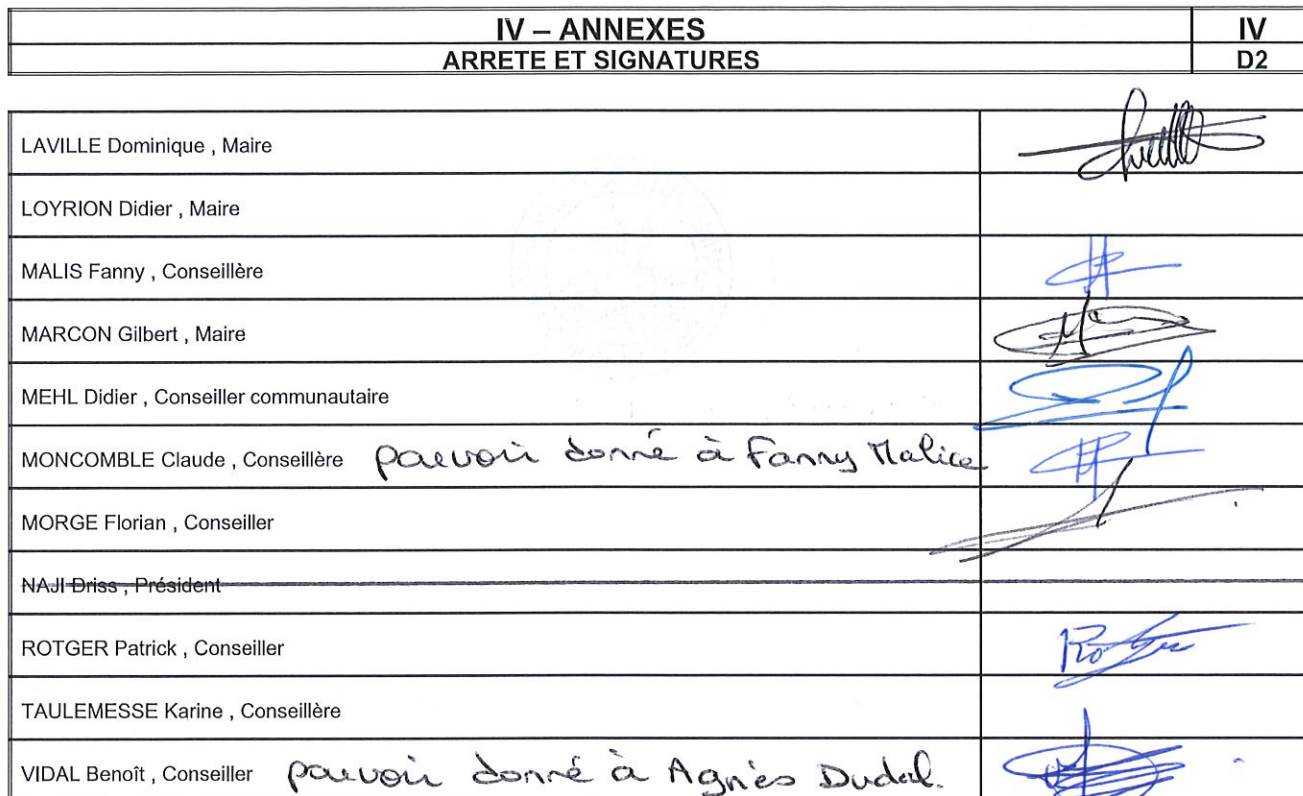 IV – ANNEXES
IV
ARRETE ET SIGNATURES
D2
LAVILLE Dominique , Maire
LOYRION Didier , Maire
MALIS Fanny , Conseillère
MARCON Gilbert , Maire
MEHL Didier , Conseiller communautaire
MONCOMBLE Claude , Conseillère pouvoir donné à Fanny Malice
MORGE Florian , Conseiller
NAJI Driss , Président
ROTGER Patrick , Conseiller
TAULEMESSE Karine , Conseillère
VIDAL Benoît , Conseiller pouvoir donné à Agnès Dudal.